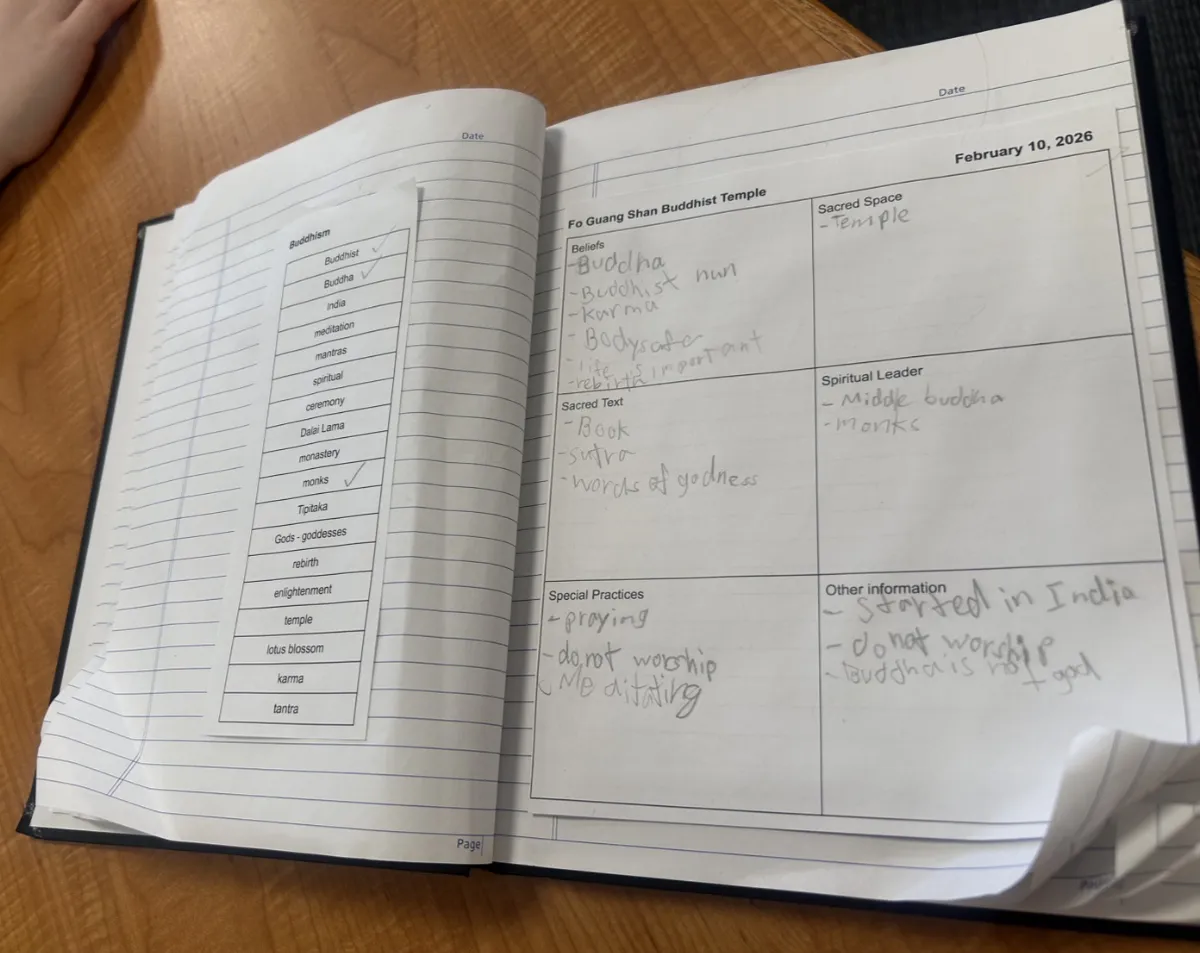 Date
Buddhism
Buddhist ✓
Buddha ✓
India
meditation
mantras
spiritual
ceremony
Dalai Lama
monastery
monks ✓
Tipitaka
Gods - goddesses
rebirth
enlightenment
temple
lotus blossom
karma
tantra
Page
Date
February 10, 2026
Fo Guang Shan Buddhist Temple
Beliefs
-Buddha
-Buddhist nun
-karma
- Bodysafer
- life is important
-rebirth
Sacred Space
-Temple
Sacred Text
-Book
-sutra
-words of godness
Spiritual Leader
- Middle buddha
-monks
Special Practices
-praying
-do not worship
-Meditating
Other information
- started in India
- do not worship
-Buddha is not god